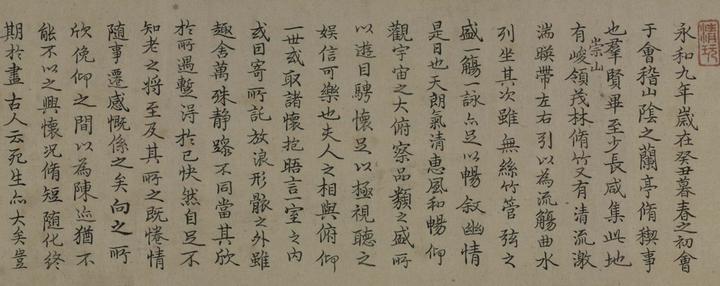 永和九年歲在癸丑暮春之初會
于會稽山陰之蘭亭脩稧事
也羣賢畢至少長咸集此地
崇山
有峻領茂林脩竹又有清流激
湍暎帶左右引以為流觴曲水
列坐其次雖無絲竹管弦之
盛一觴一詠亦足以暢叙幽情
是日也天朗氣清惠風和暢仰
觀宇宙之大俯察品類之盛所
以遊目騁懷足以極視聽之
娛信可樂也夫人之相與俯仰
一世或取諸懷抱晤言一室之內
或因寄所託放浪形骸之外雖
趣舍萬殊靜躁不同當其欣
於所遇暫得於己快然自足不
知老之將至及其所之既惓情
隨事遷感慨係之矣向之所
欣俛仰之間以為陳迹猶不
能不以之興懷況脩短隨化終
期於盡古人云死生亦大矣豈